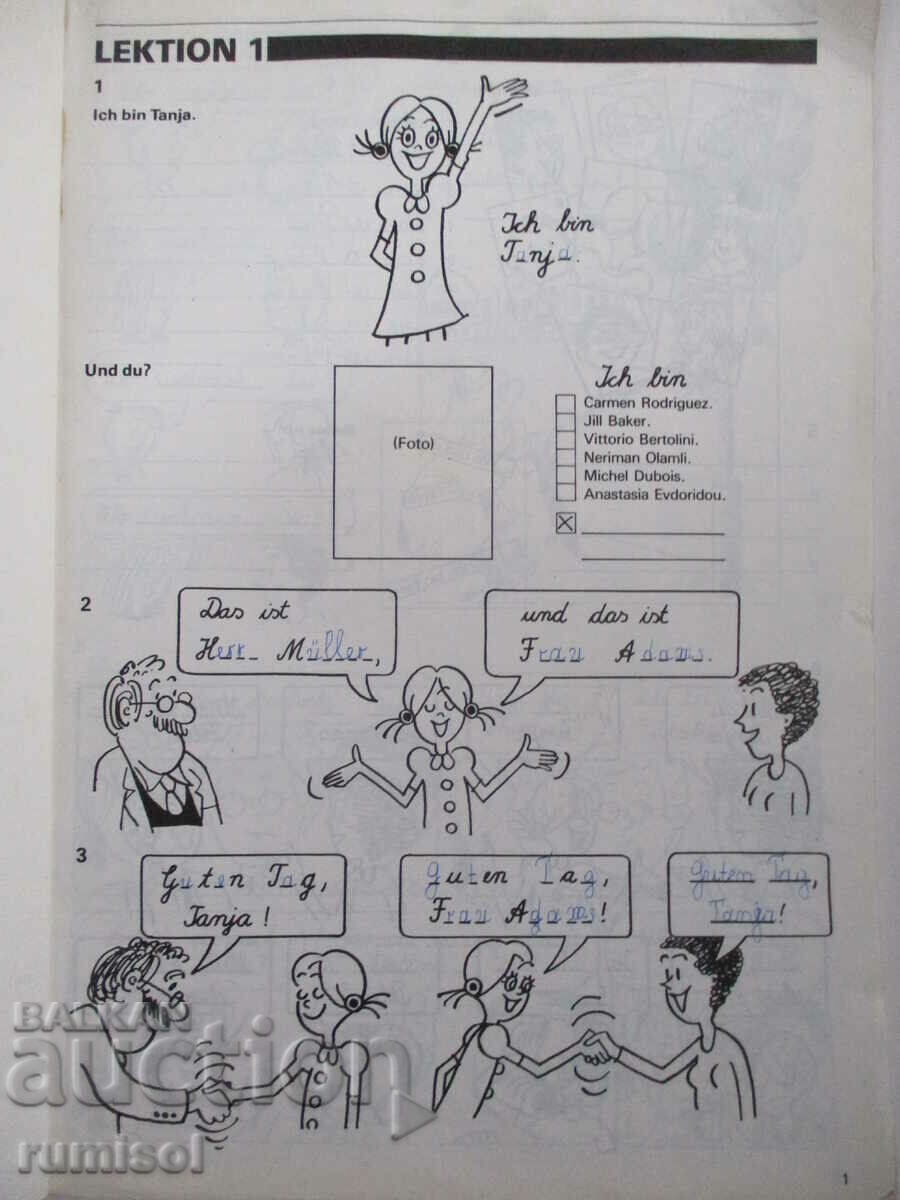 LEKTION 1
1
Ich bin Tanja.
Ich bin
Tanja.
Und du?
(Foto)
Ich bin
Carmen Rodriguez.
Jill Baker.
Vittorio Bertolini.
Neriman Olamli.
Michel Dubois.
Anastasia Evdoridou.
2
Das ist
Herr Müller,
und das ist
Frau Adams.
3
Guten Tag,
Tanja!
Guten Tag,
Frau Adams!
Guten Tag,
Tanja!
BALKAN
auction
rumisol
1